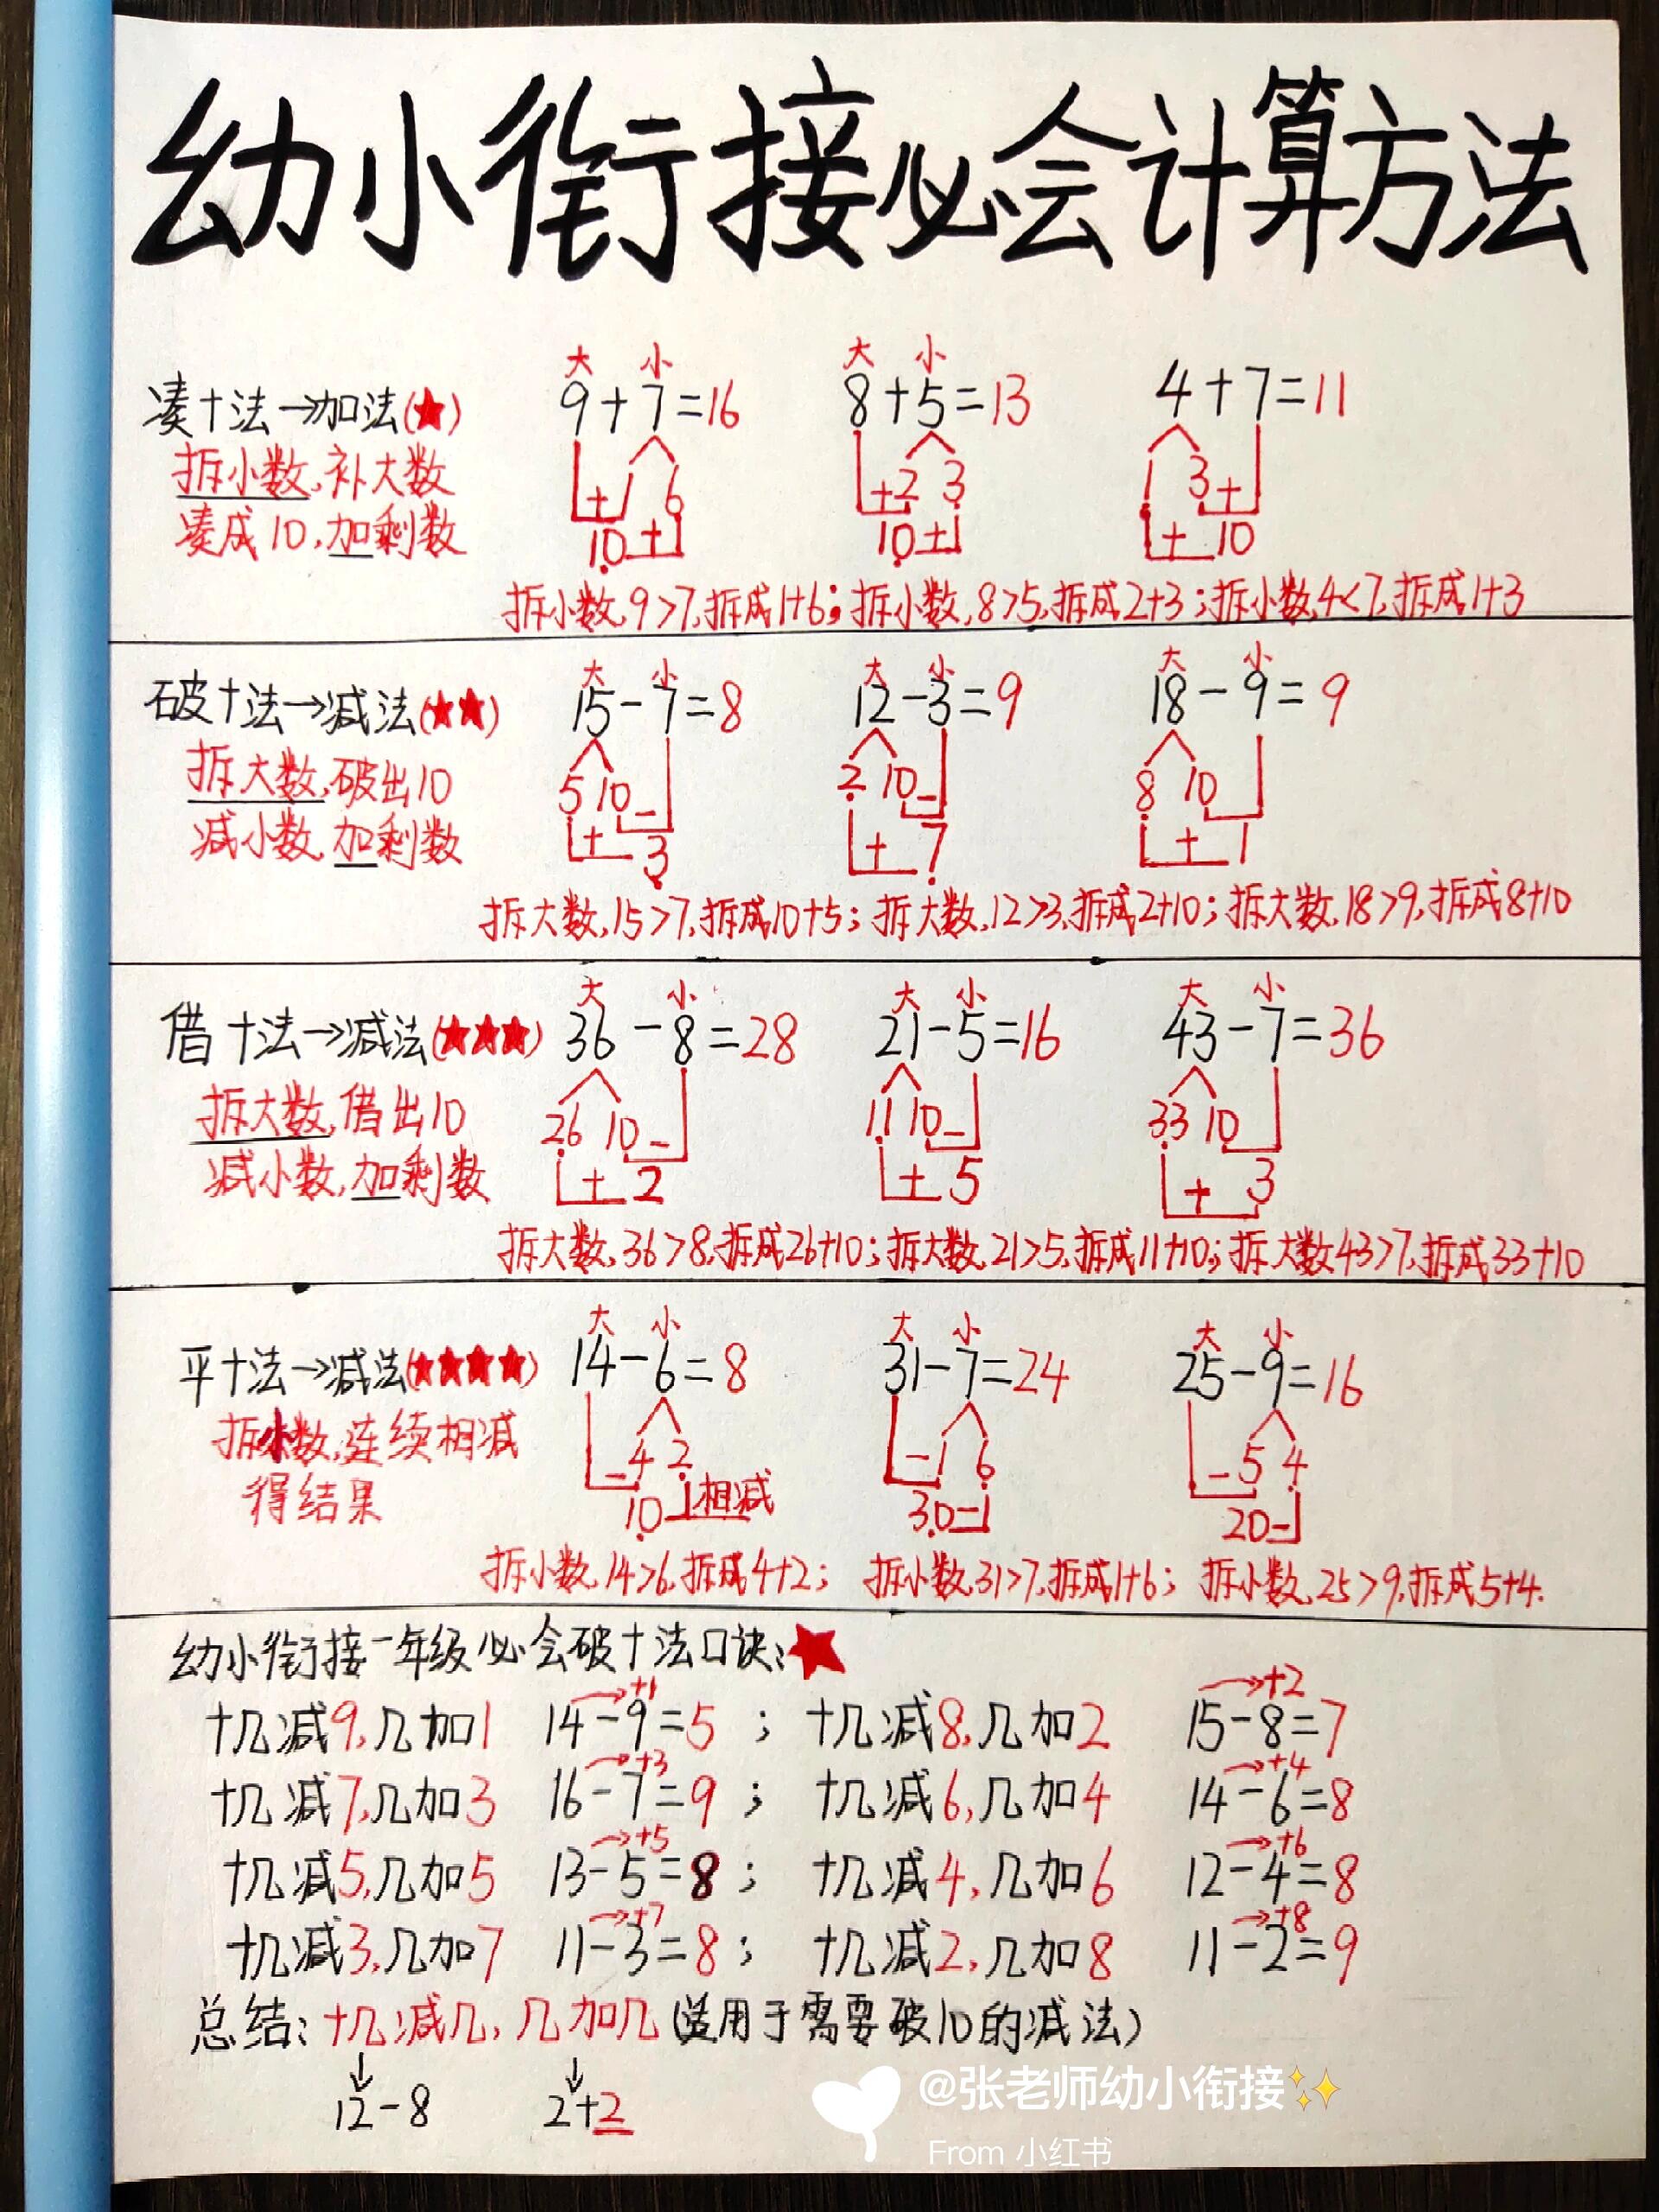 幼小衔接必会计算方法
大 小 大 小
凑十法→加法(★) 9+7=16 8+5=13 4+7=11
拆小数,补大数 +1 6 +2 3 1 3+
凑成10,加剩数 10+ 10+ + 10
拆小数,9>7,拆成1+6;拆小数,8>5,拆成2+3;拆小数,4<7,拆成1+3
大 小 大 小 大 小
破十法→减法(★★) 15-7=8 12-3=9 18-9=9
拆大数,破出10 5 10 - 2 10 - 8 10
减小数,加剩数 + 3 + 7 + 1
拆大数,15>7,拆成10+5;拆大数,12>3,拆成2+10;拆大数,18>9,拆成8+10
大 小 大 小 大 小
借十法→减法(★★★) 36-8=28 21-5=16 43-7=36
拆大数,借出10 26 10 - 11 10 - 33 10
减小数,加剩数 + 2 + 5 + 3
拆大数,36>8,拆成26+10;拆大数,21>5,拆成11+10;拆大数43>7,拆成33+10
大 小 大 小 大 小
平十法→减法(★★★★) 14-6=8 31-7=24 25-9=16
拆小数,连续相减 -4 2 -1 6 -5 4
得结果 10 相减 30- 20-
拆小数,14>6,拆成4+2; 拆小数,31>7,拆成1+6; 拆小数,25>9,拆成5+4.
幼小衔接一年级必会破十法口诀:★
→+1 →+2
十几减9,几加1 14-9=5 ; 十几减8,几加2 15-8=7
→+3 →+4
十几减7,几加3 16-7=9 ; 十几减6,几加4 14-6=8
→+5 →+6
十几减5,几加5 13-5=8 ; 十几减4,几加6 12-4=8
→+7 →+8
十几减3,几加7 11-3=8 ; 十几减2,几加8 11-2=9
总结:十几减几,几加几(适用于需要破10的减法)
↓ ↓
12-8 2+2
@张老师幼小衔接✨
From 小红书